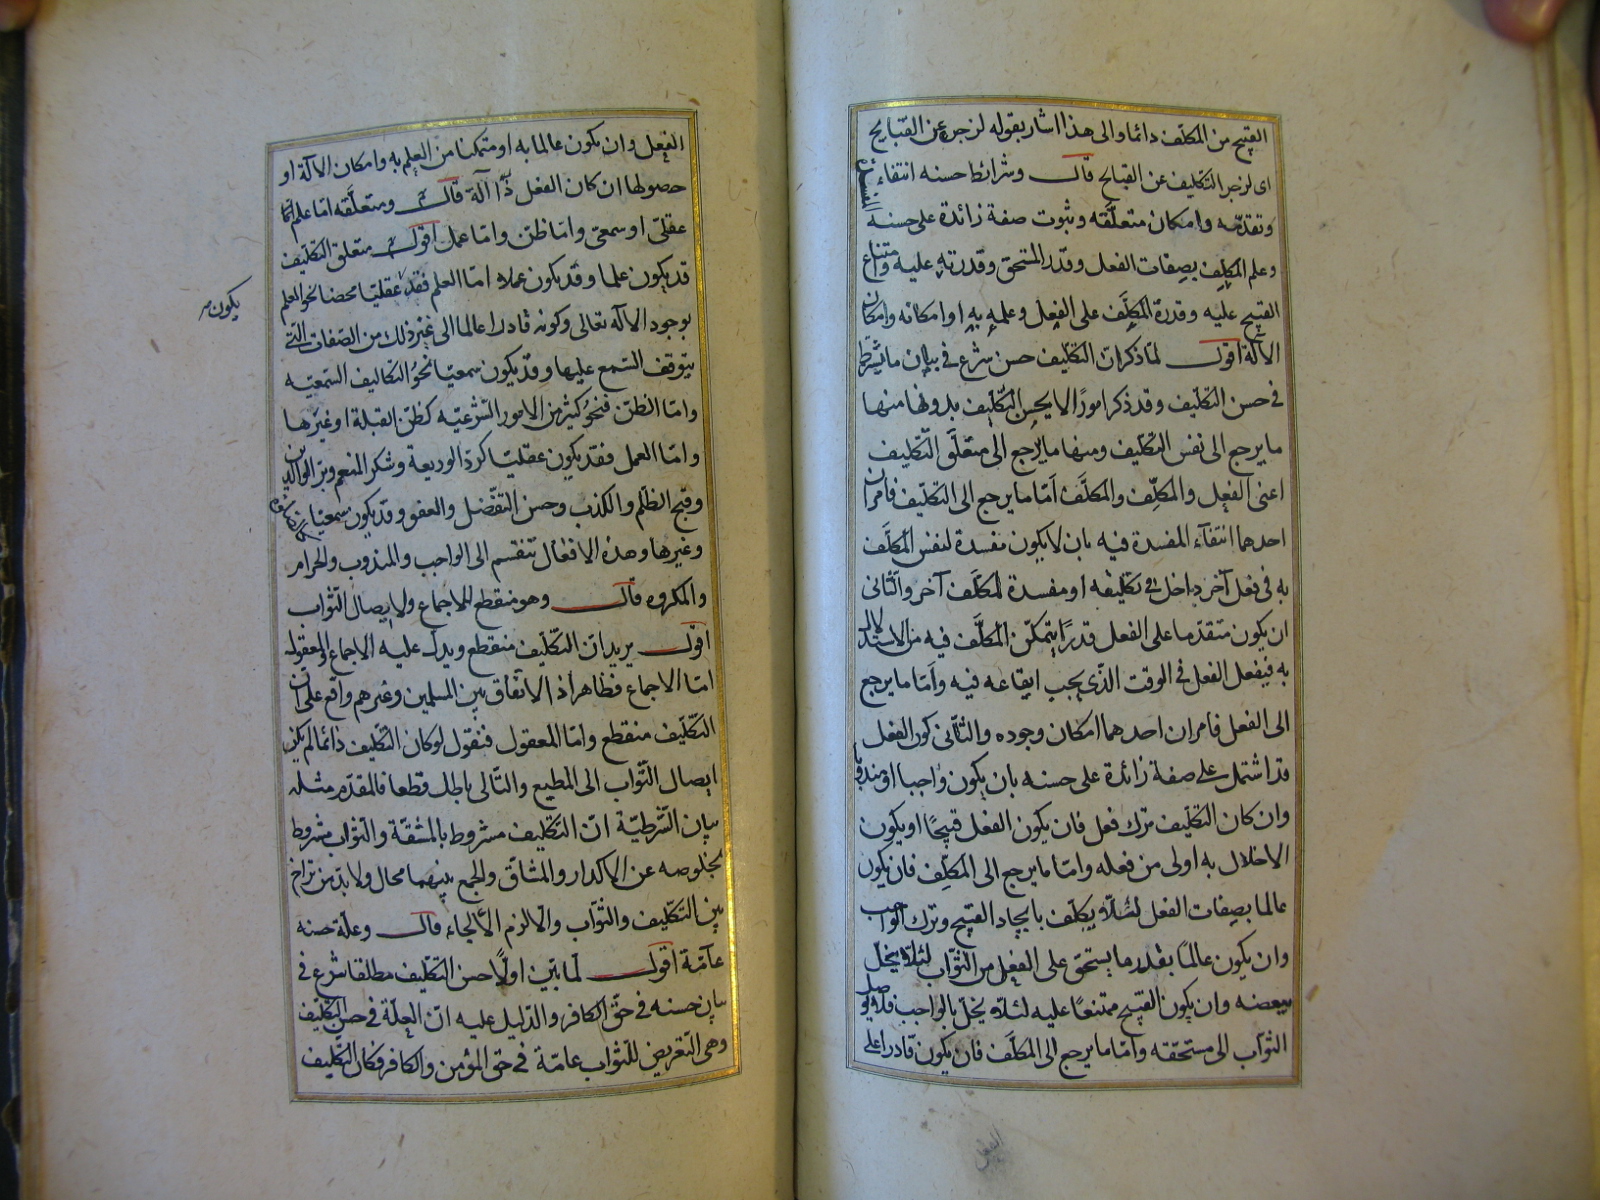 القبيح من المكلف دائما والى هذا اشار بقوله لزجره عن القبايح
اى لزجر التكليف عن القبائح قال وشرائط حسنه انتفاء المفسدة
وتقدمه وامكان متعلقه وثبوت صفة زائدة على حسنه
وعلم المكلِف بصفات الفعل وقدر المستحق وقدرته عليه وامتناع
القبيح عليه وقدرة المكلَّف على الفعل وعلمه به او امكانه وامكان
الآلة اقول لما ذكر ان التكليف حسن شرع في بيان ما يشترط
في حسن التكليف وقد ذكر امورًا لا يحسن التكليف بدونها منها
ما يرجع الى نفس التكليف ومنها ما يرجع الى متعلَّق التكليف
اعنى الفعل والمكلِّف والمكلَّف اما ما يرجع الى التكليف فامران
احدهما انتفاء المفسدة فيه بان لا يكون مفسدة لنفس المكلَّف
به في فعل آخر داخل في تكليفه او مفسدة لمكلَّف آخر والثانى
ان يكون متقدما على الفعل قدرًا يتمكن المكلَّف فيه من الاستدلال
به فيفعل الفعل في الوقت الذى يجب ايقاعه فيه وامّا ما يرجع
الى الفعل فامران احدهما امكان وجوده والثانى كون الفعل
قد اشتمل على صفة زائدة على حسنه بان يكون واجبا او مندوبا
وان كان التكليف ترك فعل فان يكون الفعل قبيحًا او يكون
الاخلال به اولى من فعله وامّا ما يرجع الى المكلِّف فان يكون
عالما بصفات الفعل لئلّا يكلف بايجاد القبيح وترك الواجب
وان يكون عالمًا بقدر ما يستحق على الفعل من الثواب لئلّا يخلّ
ببعضه وان يكون القبيح ممتنعًا عليه لئلّا يخلّ بالواجب فلا يوصل
الثواب الى مستحقه وامّا ما يرجع الى المكلَّف فان يكون قادرا على
الفعل
الفعل وان يكون عالما به او متمكنا من العلم به وامكان الآلة او
حصولها ان كان الفعل ذا آلة قال ومتعلَّقه امّا علم امّا
عقلى او سمعى وامّا ظن وامّا عمل اقول متعلق التكليف
قد يكون علما وقد يكون عملا امّا العلم فقد عقليّا محضا نحو العلم
يكون صح
بوجود الاله تعالى وكونه قادرا عالما الى غير ذلك من الصفات التى
يتوقف السمع عليها وقد يكون سمعيّا نحو التكاليف السمعيّه
وامّا الظن فنحو كثير من الامور الشرعيّه كظن القبلة او غيرها
وامّا العمل فقد يكون عقليّا كرد الوديعة وشكر المنعم وبر الوالدين
وقبح الظلم والكذب وحسن التفضّل والعفو وقد يكون سمعيّا كالصلوة
وغيرها وهذه الافعال تنقسم الى الواجب والمندوب والحرام
والمكروه قال وهو منقطع للاجماع ولايصال الثواب
اقول يريد ان التكليف منقطع ويدل عليه الاجماع والمعقول
امّا الاجماع فظاهر اذ الاتفاق بين المسلمين وغيرهم واقع على ان
التكليف منقطع وامّا المعقول فنقول لو كان التكليف دائما لم يكن
ايصال الثواب الى المطيع والتالى باطل قطعا فالمقدم مثله
بيان الشرطيّة انّ التكليف مشروط بالمشقّة والثواب مشروط
بخلوصه عن الاكدار والمشاق والجمع بينهما محال ولا بد من تراخ
بين التكليف والثواب والّا لزم الالجاء قال وعلة حسنه
عامّة اقول لمّا بيّن اولًا حسن التكليف مطلقا شرع في
بيان حسنه في حق الكافر والدليل عليه انّ العلة في حسن التكليف
وهى التعريض للثواب عامّة في حق المؤمن والكافر فكان التكليف